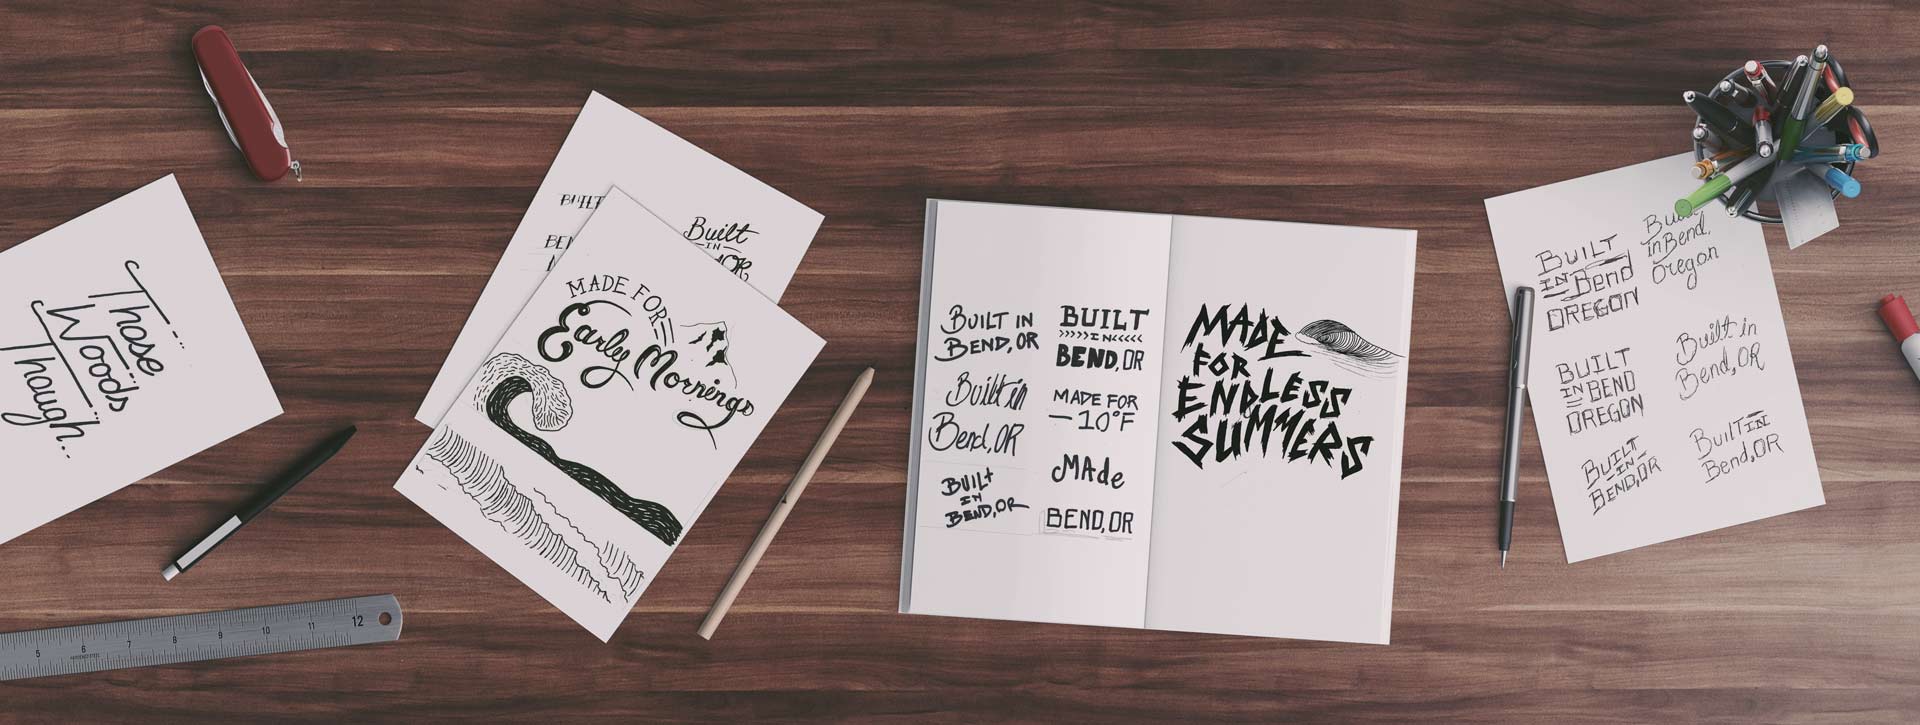 Those
Woods
Though...
5 6 7 8 9 10 11 12
Built
IN
MADE FOR
Early Mornings
BUILT IN
BEND, OR
Built in
Bend, OR
BUILt
IN
BEND, OR
BUILT
IN
BEND, OR
MADE FOR
-10°F
MAde
BEND, OR
MADE
FOR
ENDLESS
SUMMERS
BUILT
IN Bend
OREGON
in Bend,
Oregon
BUILT
IN BEND
OREGON
Built in
Bend, OR
BUILT
IN
BEND, OR
BUILT IN
Bend, OR